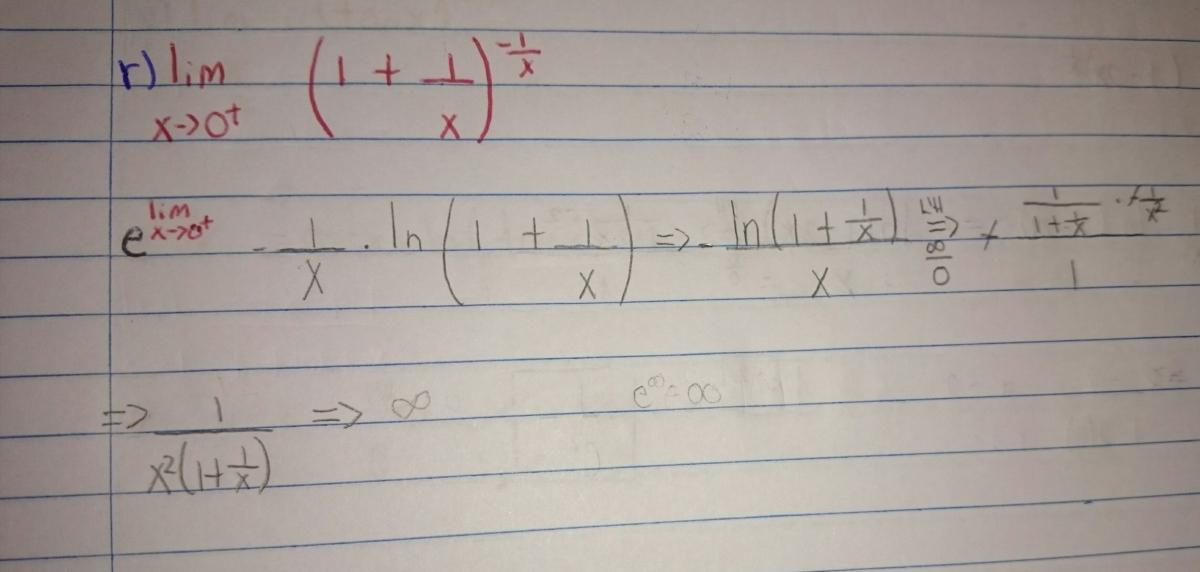 r) lim x→0⁺ (1 + 1/x)^(-1/x)
e^(lim x→0⁺) - 1/x · ln(1 + 1/x) => - ln(1 + 1/x)/x L'H => ∞/0 + (1/(1+1/x) · + 1/x²)/1
=> 1/(x²(1+1/x)) => ∞ e^∞ = ∞